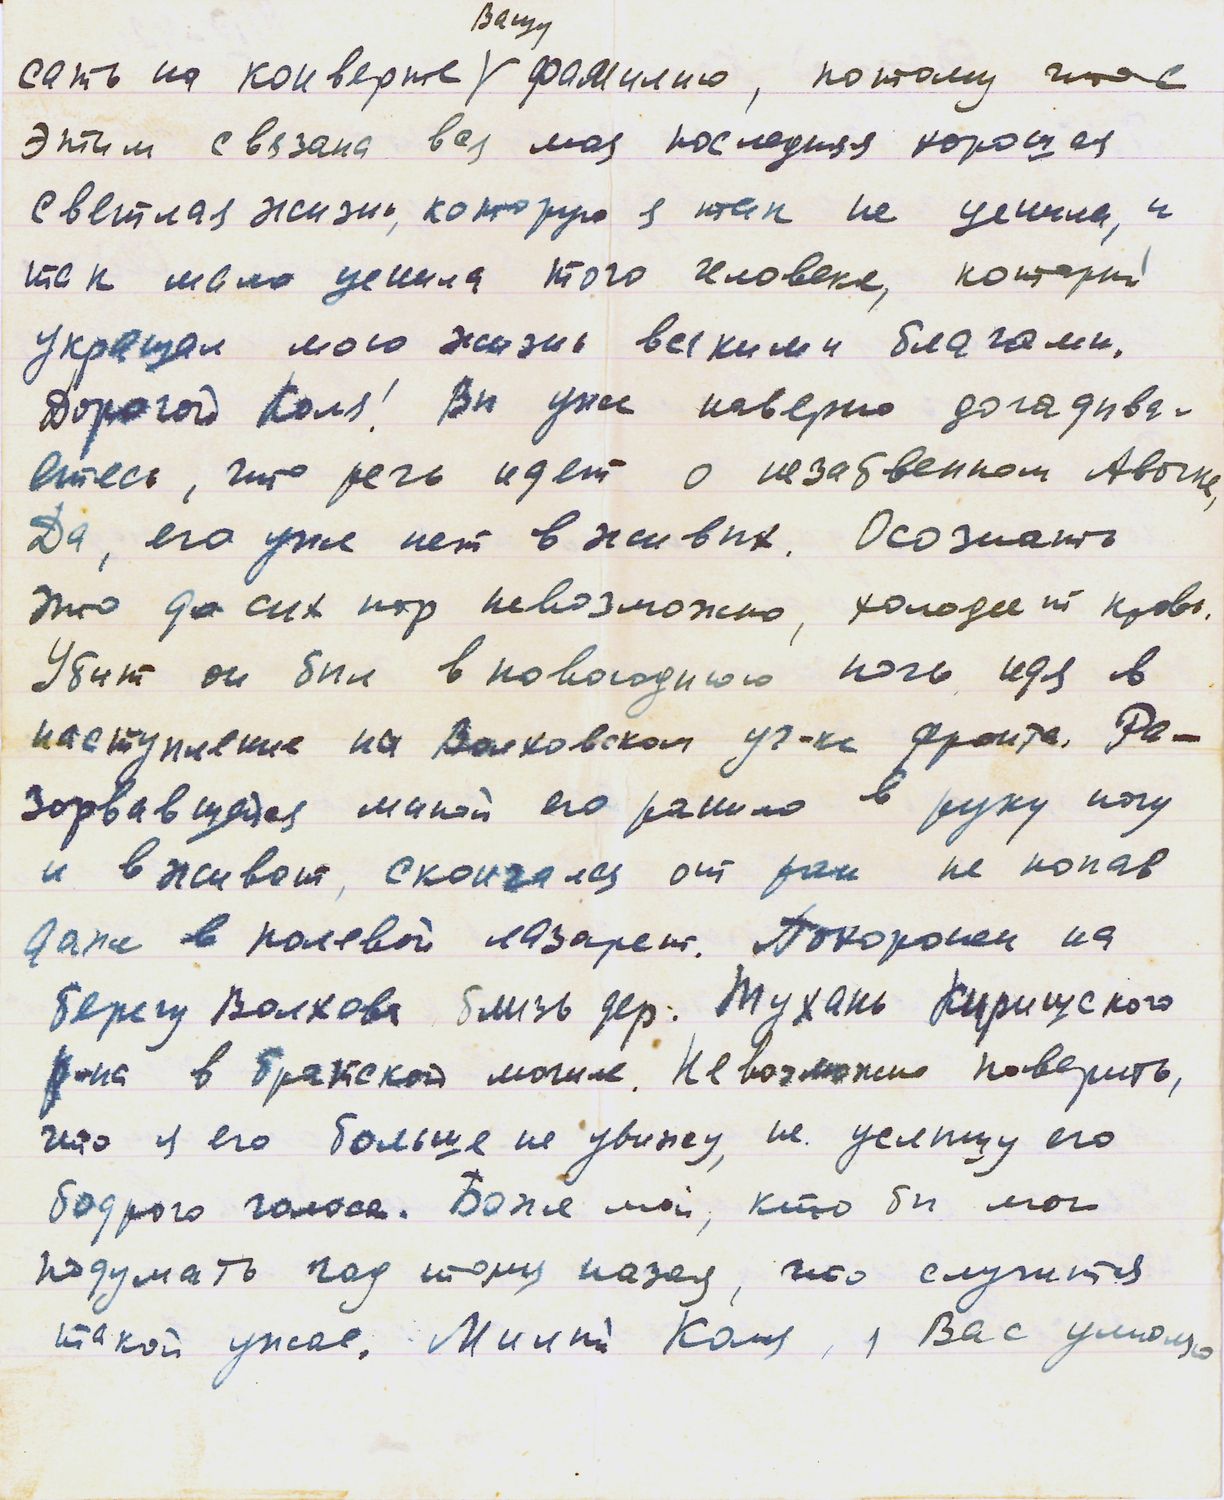 Вашу
сать на конверте V фамилию, потому что с
этим связана вся моя последняя хорошая
светлая жизнь, которую я так не ценила, и
так мало ценила того человека, который
украшал мою жизнь всякими благами.
Дорогой Коля! Вы уже наверно догадыва-
етесь, что речь идет о незабвенном Авочке,
Да, его уже нет в живых. Осознать
это до сих пор невозможно, холодеет кровь.
Убит он был в новогоднюю ночь идя в
наступление на Волховском уч-ке фронта. Ра-
зорвавшейся миной его ранило в руку ногу
и в живот, скончался от ран не попав
даже в полевой лазарет. Похоронен на
берегу Волхова близь дер. Тухань Киришского
р-на в братской могиле. Невозможно поверить,
что я его больше не увижу, не услышу его
бодрого голоса. Боже мой, кто бы мог
подумать год тому назад, что случится
такой ужас. Милый Коля, я Вас умоляю